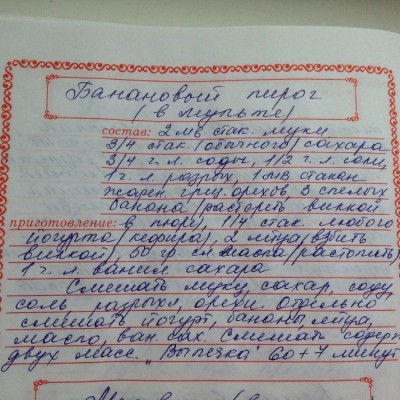 Банановый пирог
(в мульте)
состав: 2 мв стак. муки
3/4 стак. (обычного) сахара
3/4 г. л. соды, 1/2 г. л. соли,
1 г. л. разрых, 1 мв стакан
жарен. грец. орехов 3 спелых
банана (растереть вилкой
приготовление: в пюре), 1/4 стак. любого
йогурта (кефира), 2 яйца (взбить
вилкой), 50 гр. сл. масла (растопить)
1 г. л. ванил сахара
Смешать муку, сахар, соду,
соль, разрыхл, орехи. Отдельно
смешать йогурт, бананы, яйца,
масло, ван. сах. Смешать
двух масс. "Выпечка" 60 + 7 минут